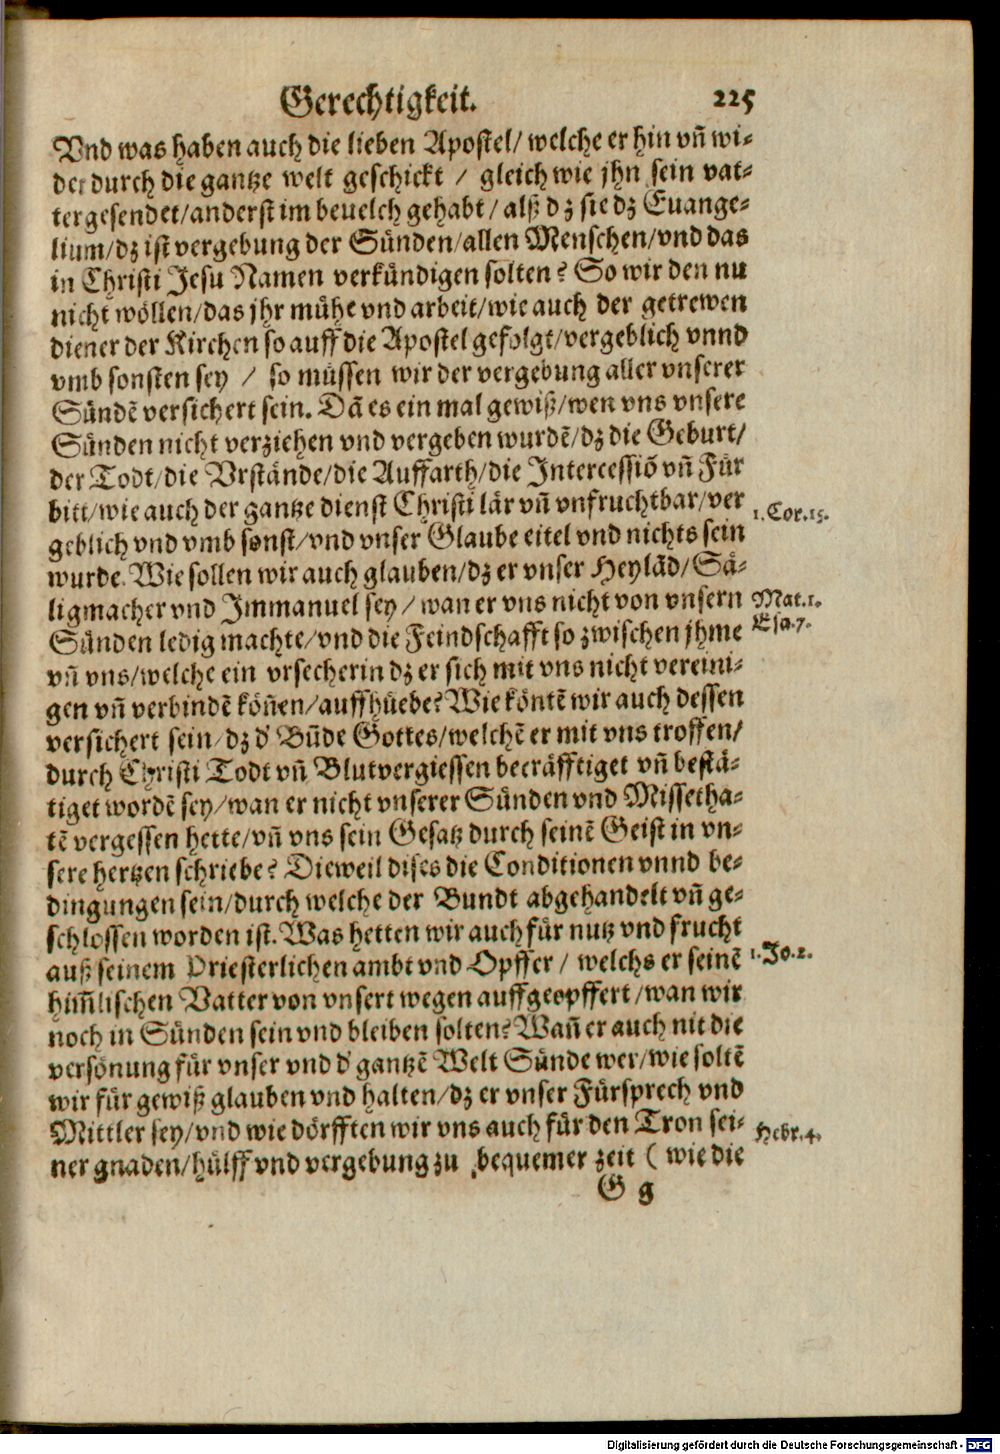 Gerechtigkeit. 225
Vnd was haben auch die lieben Apostel/ welche er hin vn̄ wi-
der durch die gantze welt geschickt / gleich wie jhn sein vat-
ter gesendet/anderst im beuelch gehabt/ alß dz sie dz Euange-
lium/dz ist vergebung der Sünden/allen Menschen/vnd das
in Christi Jesu Namen verkündigen solten? So wir den nu
nicht wöllen/das jhr mühe vnd arbeit/wie auch der getrewen
diener der Kirchen so auff die Apostel gefolgt/vergeblich vnnd
vmb sonsten sey / so müssen wir der vergebung aller vnserer
Sündē versichert sein. Dā es ein mal gewiß/wen vns vnsere
Sünden nicht verziehen vnd vergeben wurdē/dz die Geburt/
der Todt/die Vrstände/die Auffarth/die Intercessiō vn̄ Für
bitt/wie auch der gantze dienst Christi lär vn̄ vnfruchtbar/ver
1. Cor. 15.
geblich vnd vmb sonst/vnd vnser Glaube eitel vnd nichts sein
wurde. Wie sollen wir auch glauben/dz er vnser Heylād/Sä-
ligmacher vnd Immanuel sey/ wan er vns nicht von vnsern
Mat. 1.
Esa. 7.
Sünden ledig machte/vnd die Feindschafft so zwischen jhme
vn̄ vns/welche ein vrsecherin dz er sich mit vns nicht vereini-
gen vn̄ verbindē kön̄en/auffhüebe? Wie köntē wir auch dessen
versichert sein/dz d' Būde Gottes/welchē er mit vns troffen/
durch Christi Todt vn̄ Blutvergiessen becräfftiget vn̄ bestä-
tiget wordē sey/wan er nicht vnserer Sünden vnd Missetha-
tē vergessen hette/vn̄ vns sein Gesatz durch seinē Geist in vn-
sere hertzen schriebe? Dieweil dises die Conditionen vnnd be-
dingungen sein/durch welche der Bundt abgehandelt vn̄ ge-
schlossen worden ist. Was hetten wir auch für nutz vnd frucht
auß seinem Priesterlichen ambt vnd Opffer/ welchs er seinē
1. Jo. 2.
him̄lischen Vatter von vnsert wegen auffgeopffert/wan wir
noch in Sünden sein vnd bleiben solten? Wan̄ er auch nit die
versönung für vnser vnd d' gantzē Welt Sünde wer/wie soltē
wir für gewiß glauben vnd halten/dz er vnser Fürsprech vnd
Mittler sey/vnd wie dörfften wir vns auch für den Tron sei-
Hebr. 4.
ner gnaden/hülff vnd vergebung zu bequemer zeit ( wie die
G g
Digitalisierung gefördert durch die Deutsche Forschungsgemeinschaft - DFG